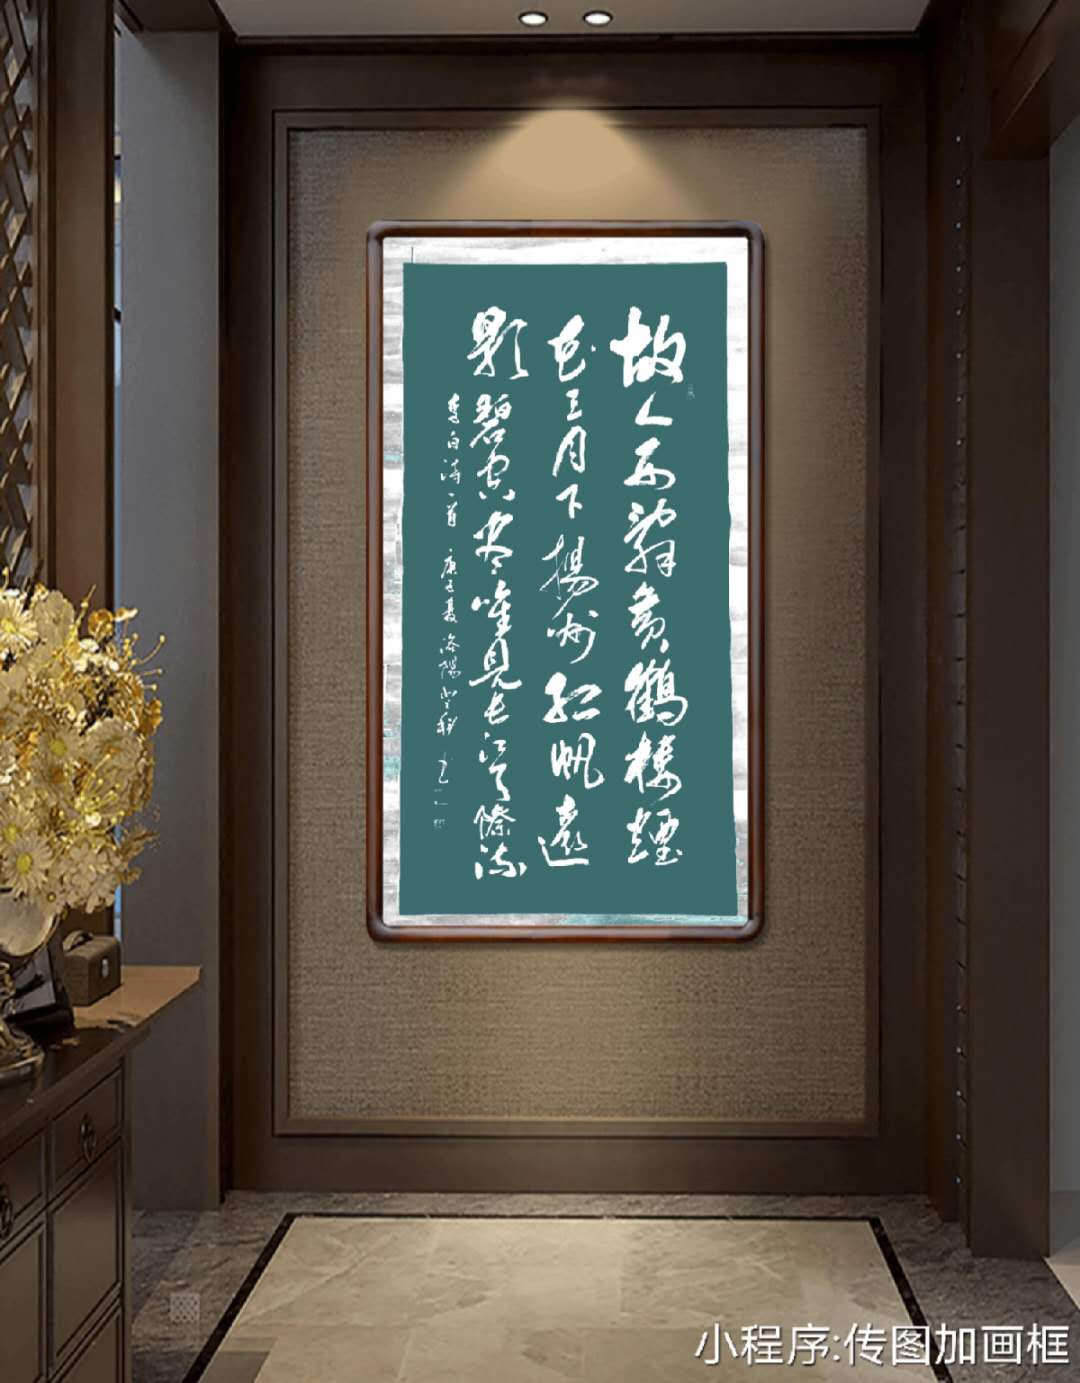 故人西辭黄鶴楼煙
花三月下揚州孤帆遠
影碧空尽唯見长江天際流
李白诗一首 庚子夏 洛陽
小程序:传图加画框